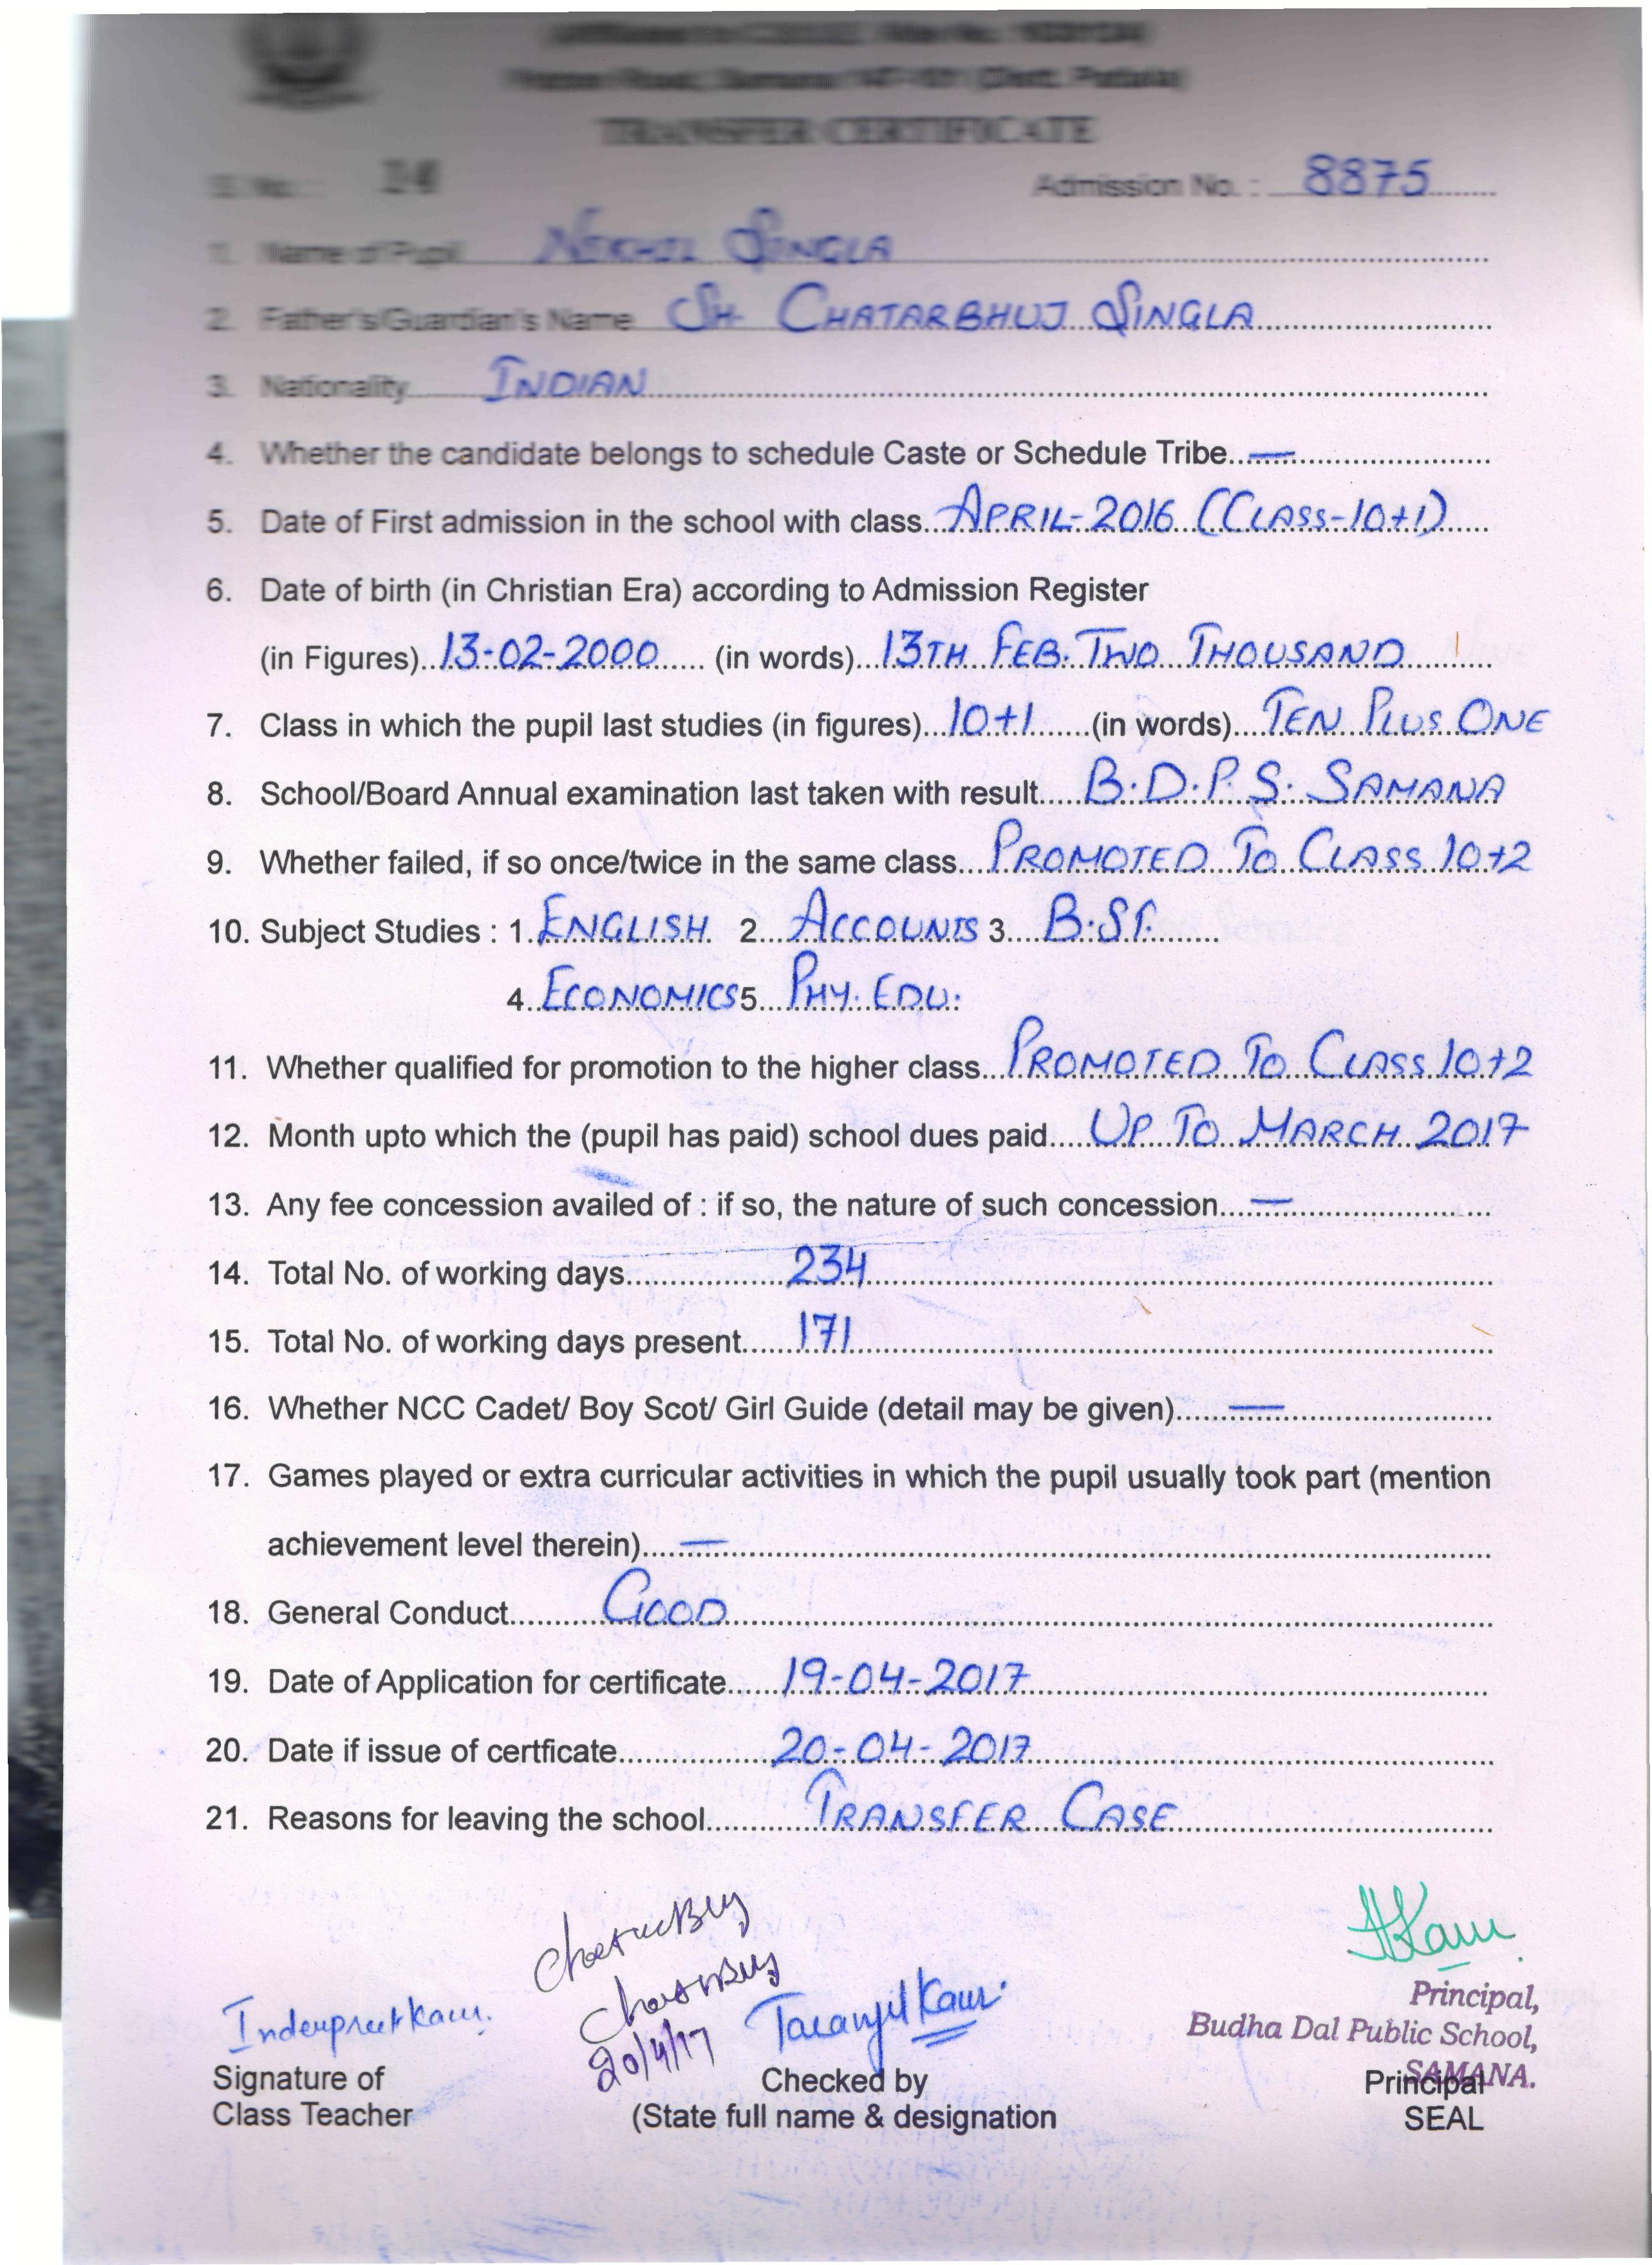 TRANSFER CERTIFICATE
Admission No. : 8875
1. Name of Pupil NIKHIL SINGLA
2. Father's/Guardian's Name SH. CHATARBHUJ SINGLA
3. Nationality INDIAN
4. Whether the candidate belongs to schedule Caste or Schedule Tribe —
5. Date of First admission in the school with class APRIL-2016 (CLASS-10+1)
6. Date of birth (in Christian Era) according to Admission Register
(in Figures) 13-02-2000 (in words) 13TH FEB. TWO THOUSAND
7. Class in which the pupil last studies (in figures) 10+1 (in words) TEN PLUS ONE
8. School/Board Annual examination last taken with result B.D.P.S. SAMANA
9. Whether failed, if so once/twice in the same class PROMOTED TO CLASS 10+2
10. Subject Studies : 1. ENGLISH 2. ACCOUNTS 3. B.ST.
4. ECONOMICS 5. PHY. EDU.
11. Whether qualified for promotion to the higher class PROMOTED TO CLASS 10+2
12. Month upto which the (pupil has paid) school dues paid UP TO MARCH 2017
13. Any fee concession availed of : if so, the nature of such concession —
14. Total No. of working days 234
15. Total No. of working days present 171
16. Whether NCC Cadet/ Boy Scot/ Girl Guide (detail may be given) —
17. Games played or extra curricular activities in which the pupil usually took part (mention
achievement level therein) —
18. General Conduct GOOD
19. Date of Application for certificate 19-04-2017
20. Date if issue of certficate 20-04-2017
21. Reasons for leaving the school TRANSFER CASE
Inderpreet Kaur. 20/4/17 Taranjit Kaur Kaur
Principal,
Budha Dal Public School,
SAMANA.
Signature of Checked by Principal
Class Teacher (State full name & designation SEAL